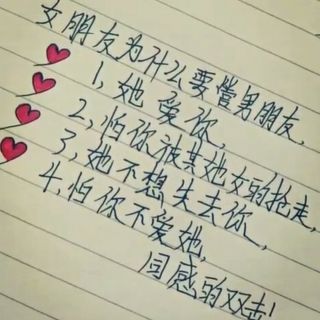 女朋友为什么要管男朋友,
1,她爱你,
2,怕你被其她女的抢走,
3,她不想失去你,
4,怕你不爱她,
同感的双击!